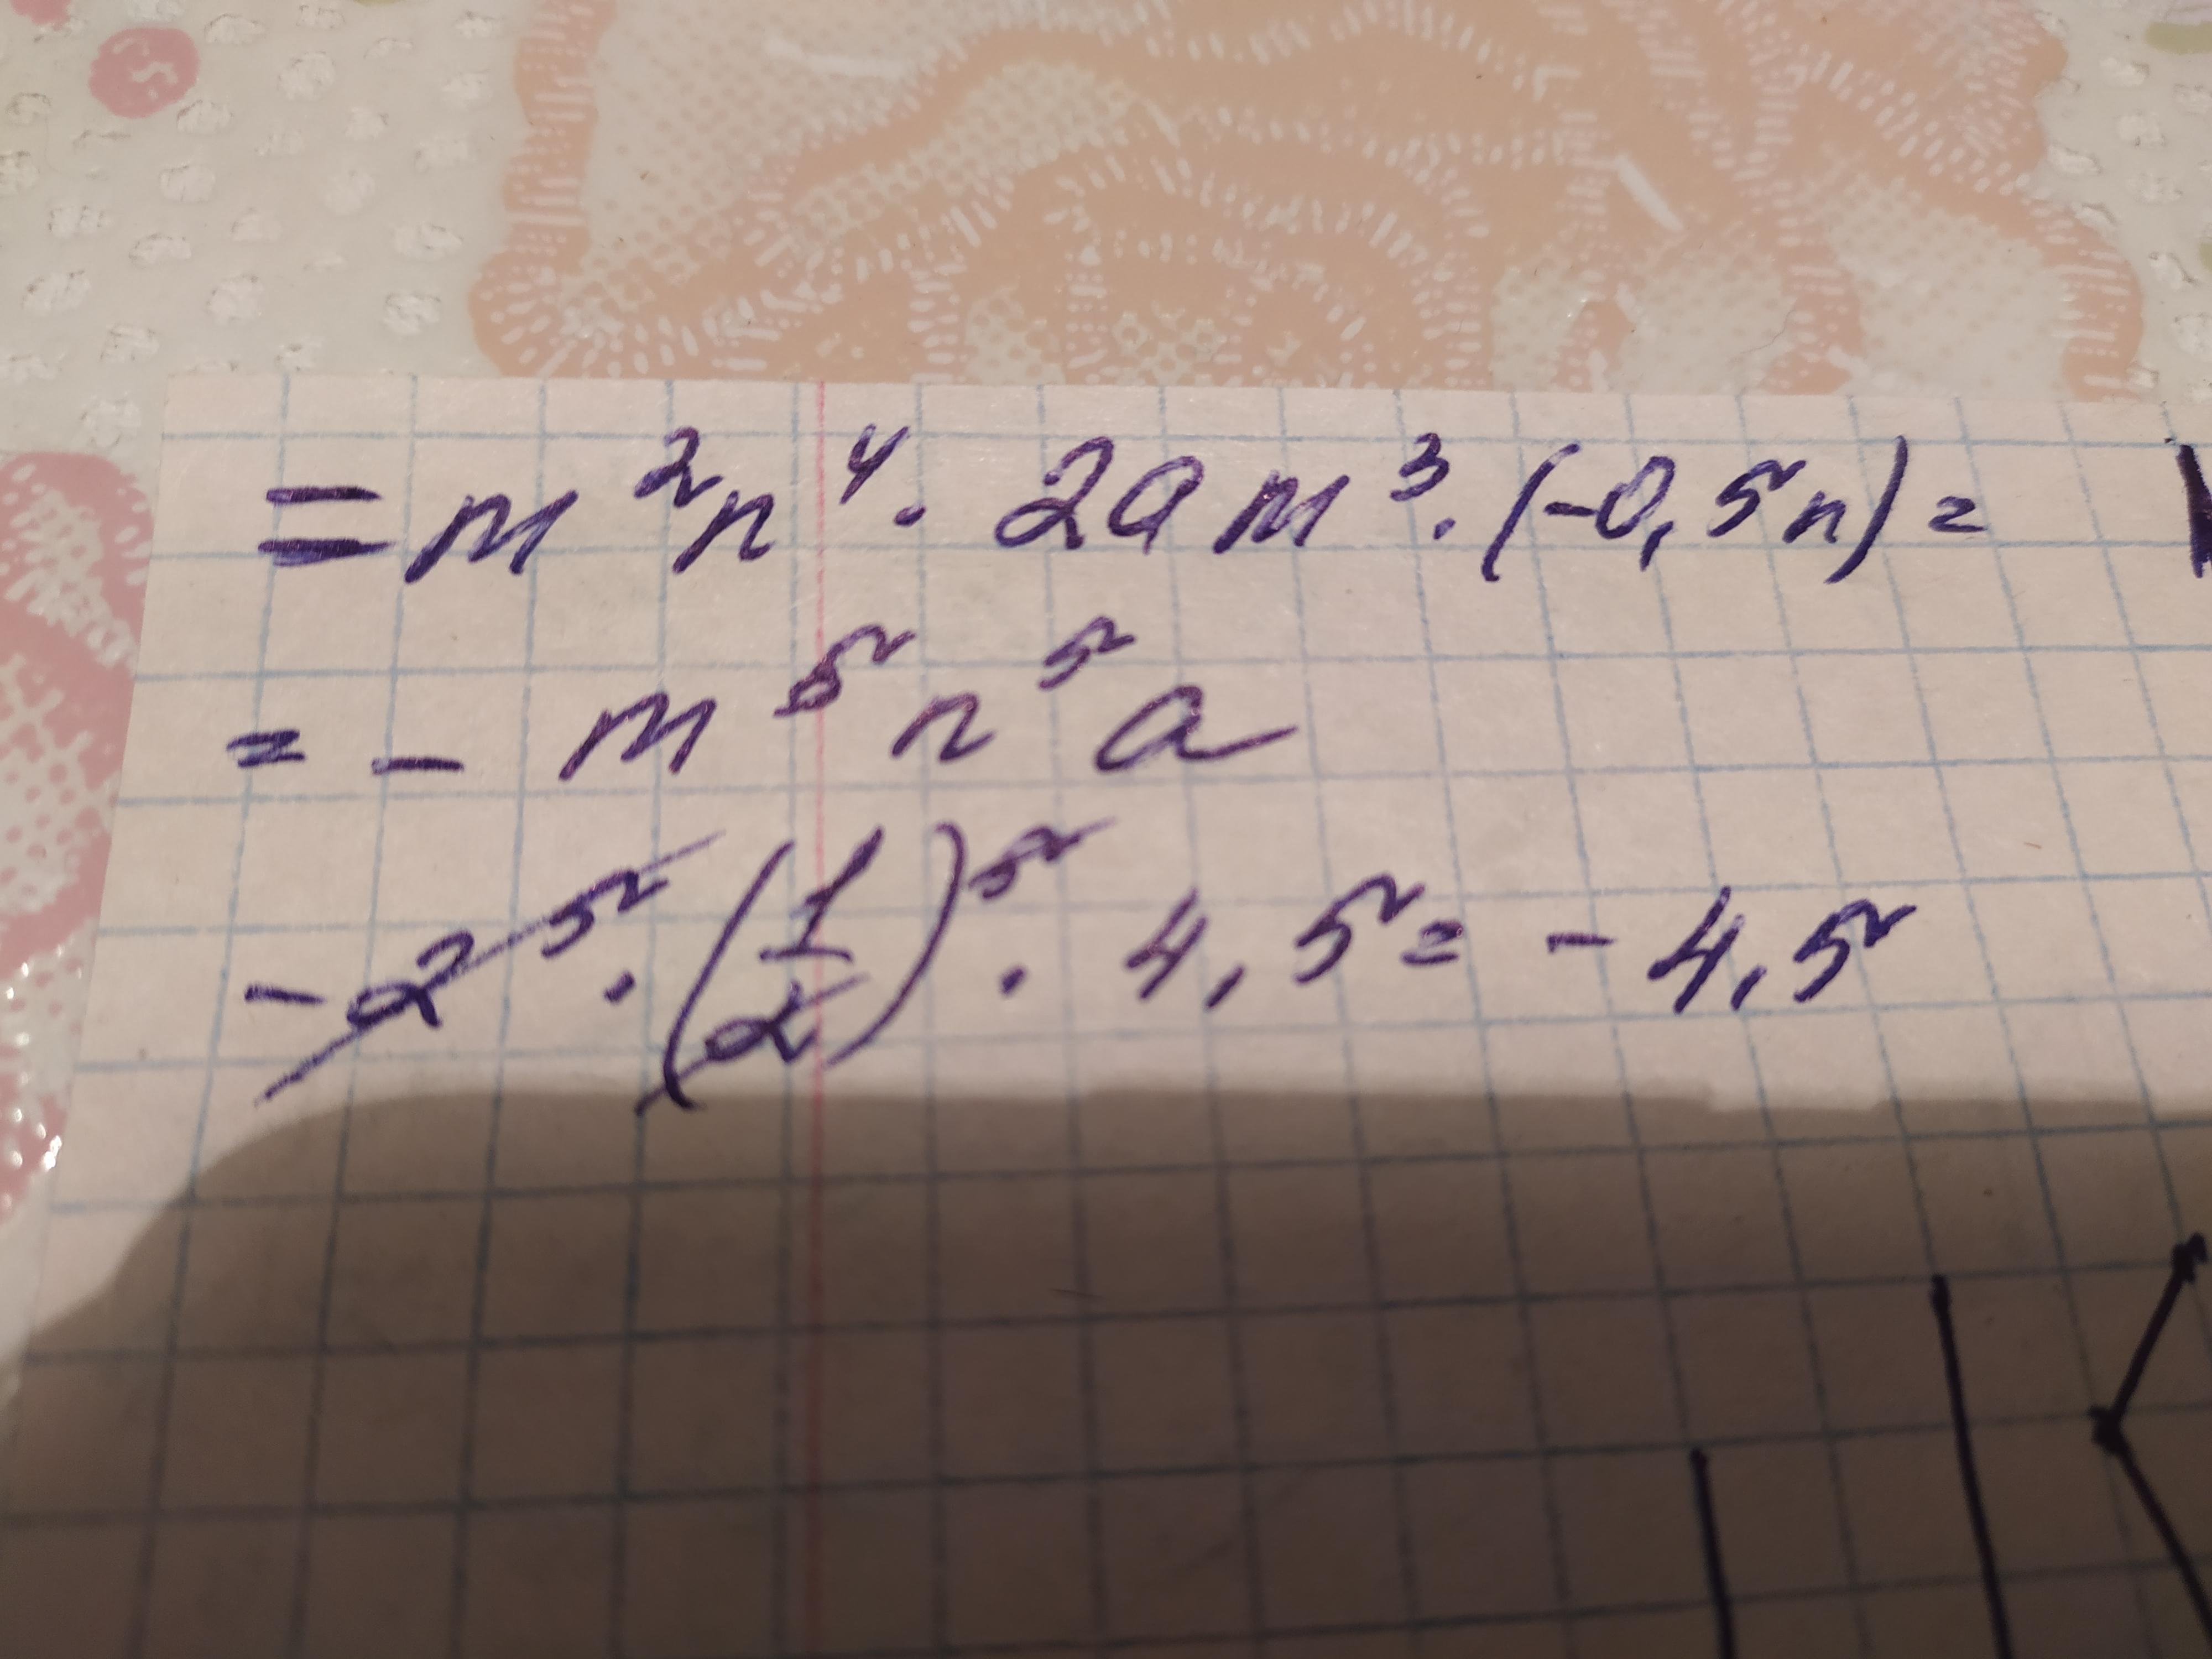 = m²n⁴ · 2am³ · (-0,5n) =
= - m⁵n⁵a
-2⁵ · (1/2)⁵ · 4,5 = -4,5